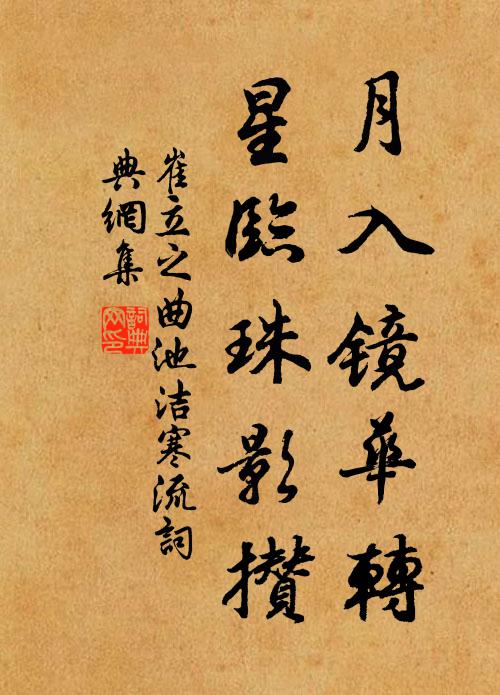 月入镜華轉
星臨珠影攢
崔立之曲池洁寒流詞
典網集
詞典網印